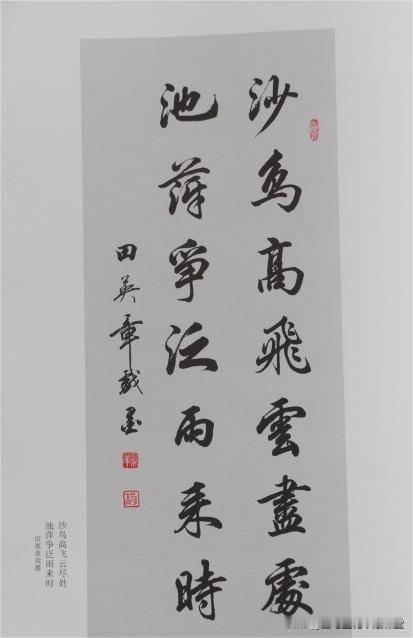 沙鸟高飛雲盡處
池萍爭泛雨来時
田英章戲墨
沙鸟高飞云尽处
池萍争泛雨来时
田英章戏墨